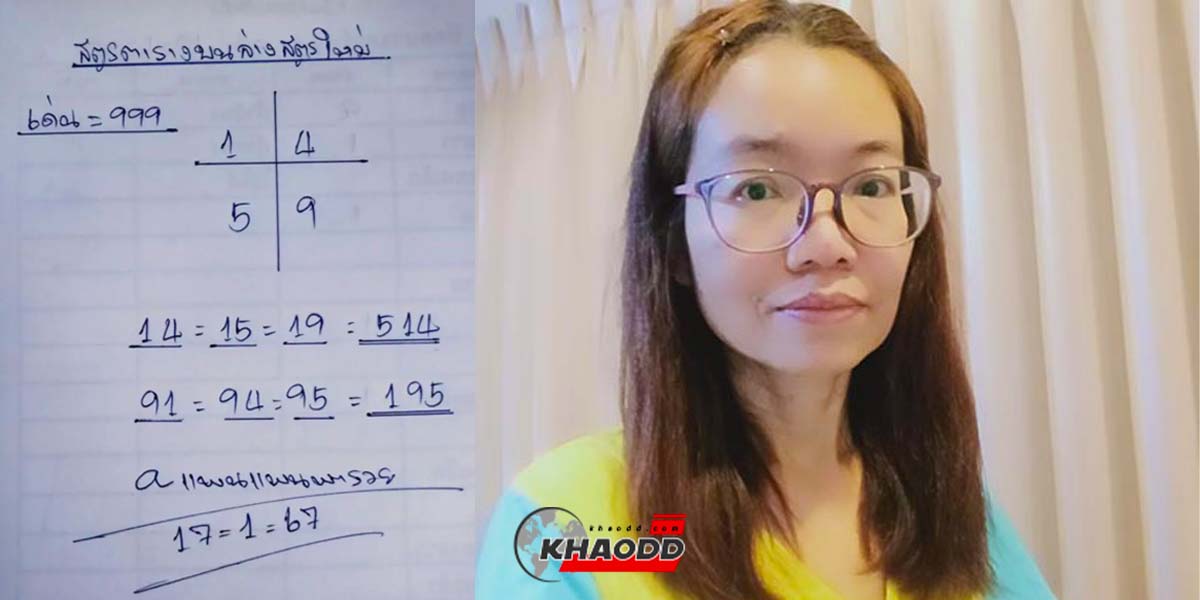 สูตรตารางบนล่างสูตรใหม่
เด่น = 999
1 4
5 9
14 = 15 = 19 = 514
91 = 94 = 95 = 195
a แพนแพนพารวย
17 = 1 = 67
khaodd.com
KHAODD